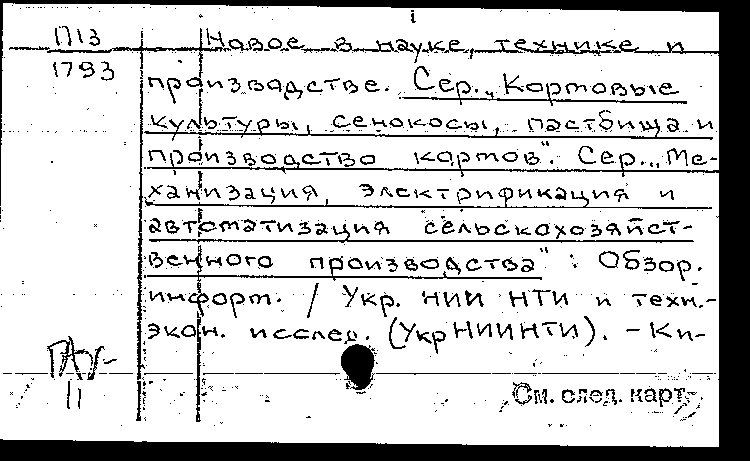 П13
1793
Новое в науке, технике и
производстве. Сер. „Кормовые
культуры, сенокосы, пастбища и
производство кормов". Сер. „Ме-
ханизация, электрификация и
автоматизация сельскохозяйст-
венного производства" : Обзор.
информ. / Укр. НИИ НТИ и техн.-
экон. исслед. (УкрНИИНТИ). - Ки-
11
См. след. карт.